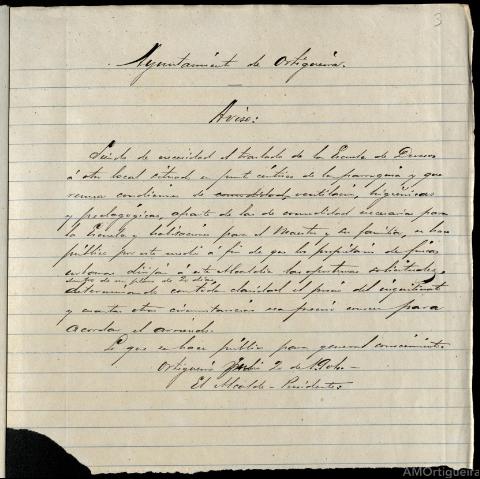 3
Ayuntamiento de Ortigueira.
Aviso:
Siendo de necesidad el traslado de la Escuela de Devesos
á otro local situado en punto céntrico de la parroquia y que
reuna condiciones de comodidad, ventilación, higiénicas
y pedagógicas, aparte de las de comodidad necesarias para
la Escuela y habitación para el Maestro y su familia, se hace
público por este medio á fin de que los propietarios de fincas
urbanas dirijan á esta Alcaldía las oportunas solicitudes,
dentro de un plazo de 20 días
determinando con toda claridad el precio del inquilinato
y cuantas otras circunstancias sea preciso conocer para
acordar el arriendo.
Lo que se hace público para general conocimiento.
Ortigueira 2 de
El Alcalde-Presidente,
AMOrtigueira